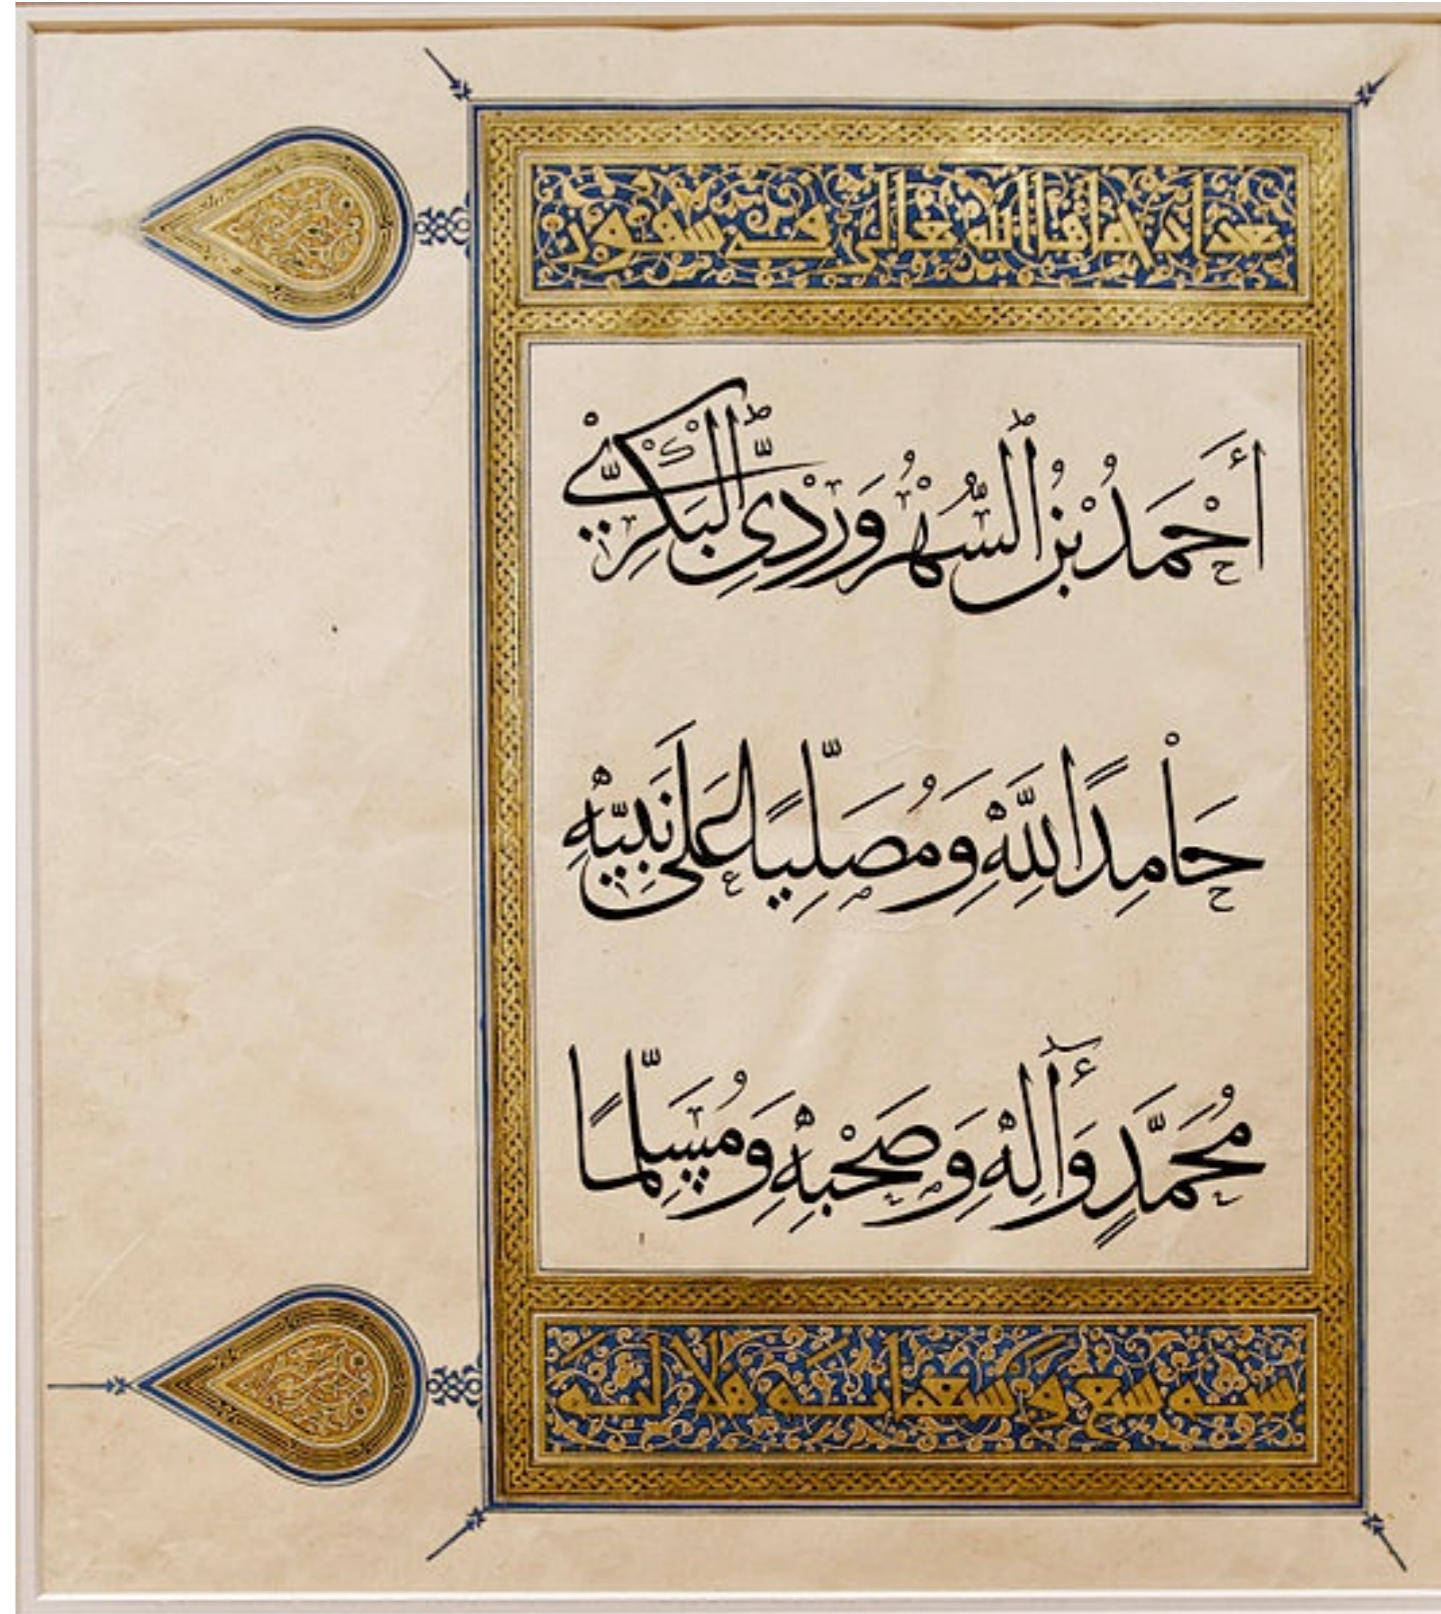 بغداد حماها الله تعالى في شهور
أَحْمَدُ بْنُ السُّهْرُوَرْدِىِّ الْبَكْرِيّ
حَامِدًا لِلَّهِ وَمُصَلِّيًا عَلَى نَبِيِّهِ
مُحَمَّدٍ وَآلِهِ وَصَحْبِهِ وَمُسَلِّمًا
سنة سبع وسبعمائة هلالية